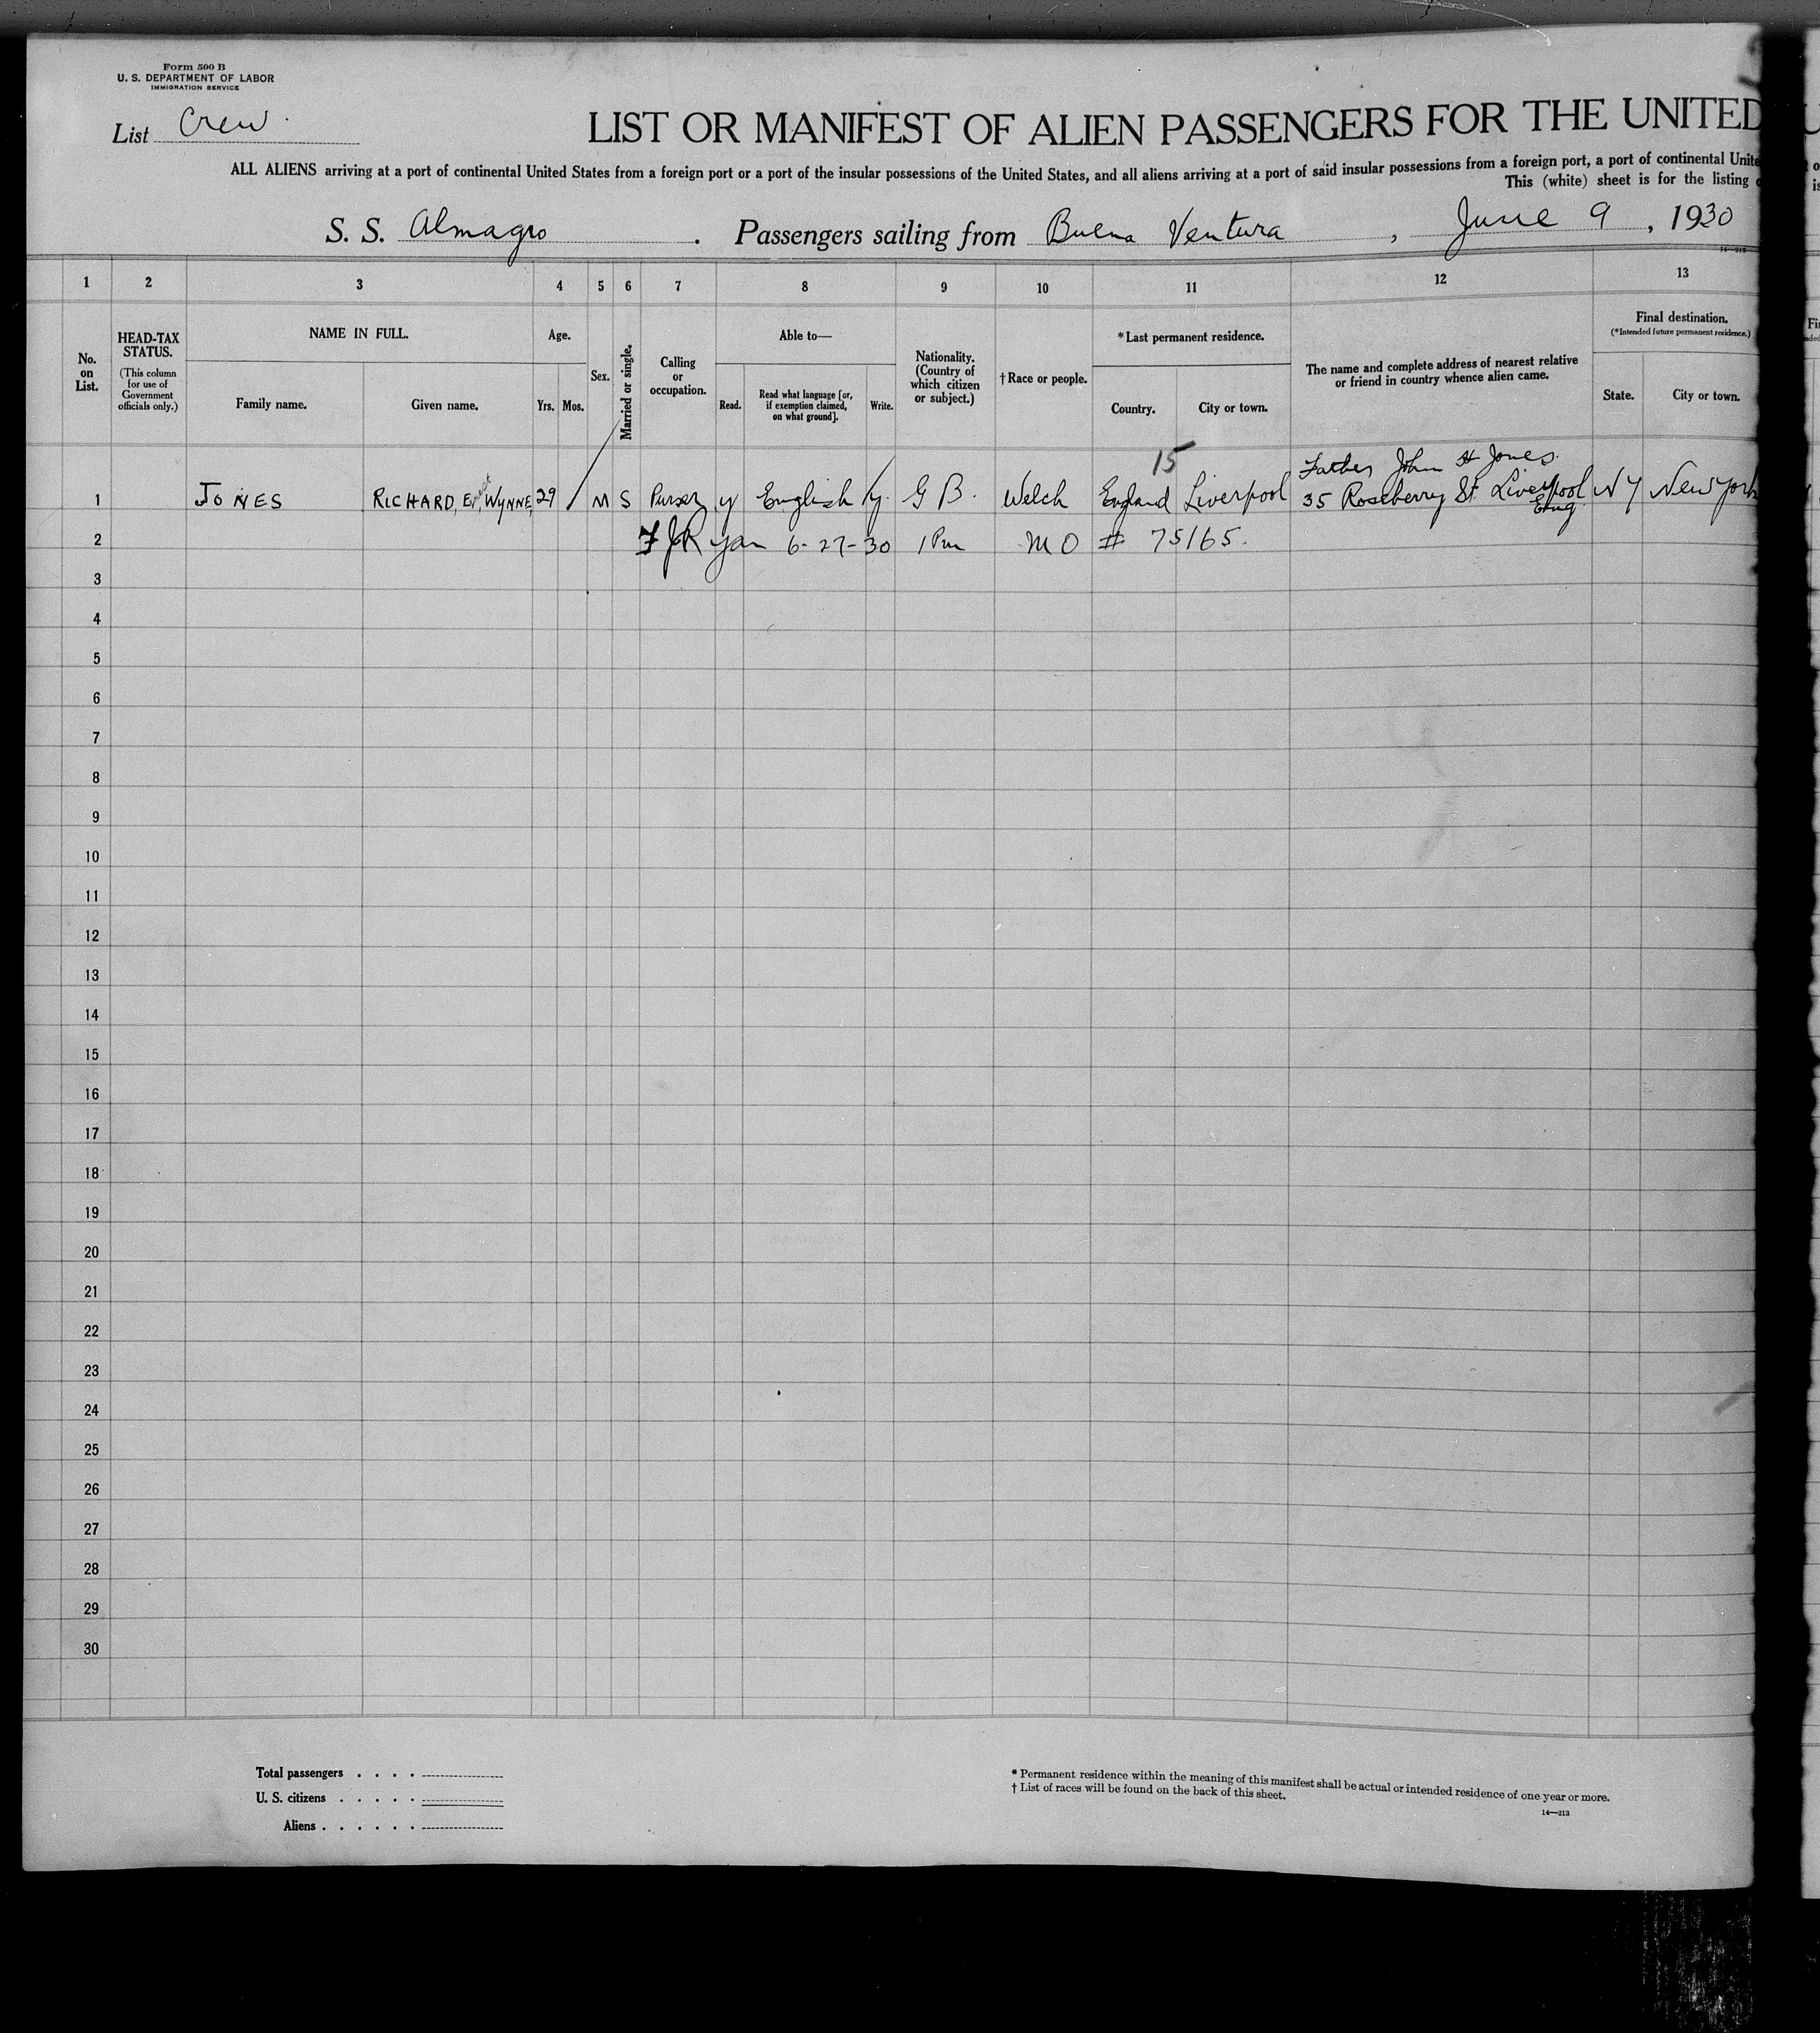 Form 500 B
U. S. DEPARTMENT OF LABOR
IMMIGRATION SERVICE
List Crew.
LIST OR MANIFEST OF ALIEN PASSENGERS FOR THE UNITED
ALL ALIENS arriving at a port of continental United States from a foreign port or a port of the insular possessions of the United States, and all aliens arriving at a port of said insular possessions from a foreign port, a port of continental Unite
This (white) sheet is for the listing
S. S. Almagro . Passengers sailing from Buena Ventura , June 9 , 1930
14—213
1 2 3 4 5 6 7 8 9 10 11 12 13
No. on List.
HEAD-TAX STATUS.
(This column for use of Government officials only.)
NAME IN FULL.
Family name. Given name.
Age.
Yrs. Mos.
Sex.
Married or single.
Calling or occupation.
Able to—
Read. Read what language [or, if exemption claimed, on what ground]. Write.
Nationality. (Country of which citizen or subject.)
†Race or people.
*Last permanent residence.
Country. City or town.
The name and complete address of nearest relative or friend in country whence alien came.
Final destination.
(*Intended future permanent residence.)
State. City or town.
15 Father John H Jones.
1 JONES RICHARD, Ernest WYNNE, 29 / M S Purser y English y. G B. Welch England Liverpool 35 Roseberry St Liverpool Eng. N Y New York
2 F J Ryan 6-27-30 1 Pm M O # 75165.
3
4
5
6
7
8
9
10
11
12
13
14
15
16
17
18
19
20
21
22
23
24
25
26
27
28
29
30
Total passengers . . . .
U. S. citizens . . . . .
Aliens . . . . . .
* Permanent residence within the meaning of this manifest shall be actual or intended residence of one year or more.
† List of races will be found on the back of this sheet.
14—213